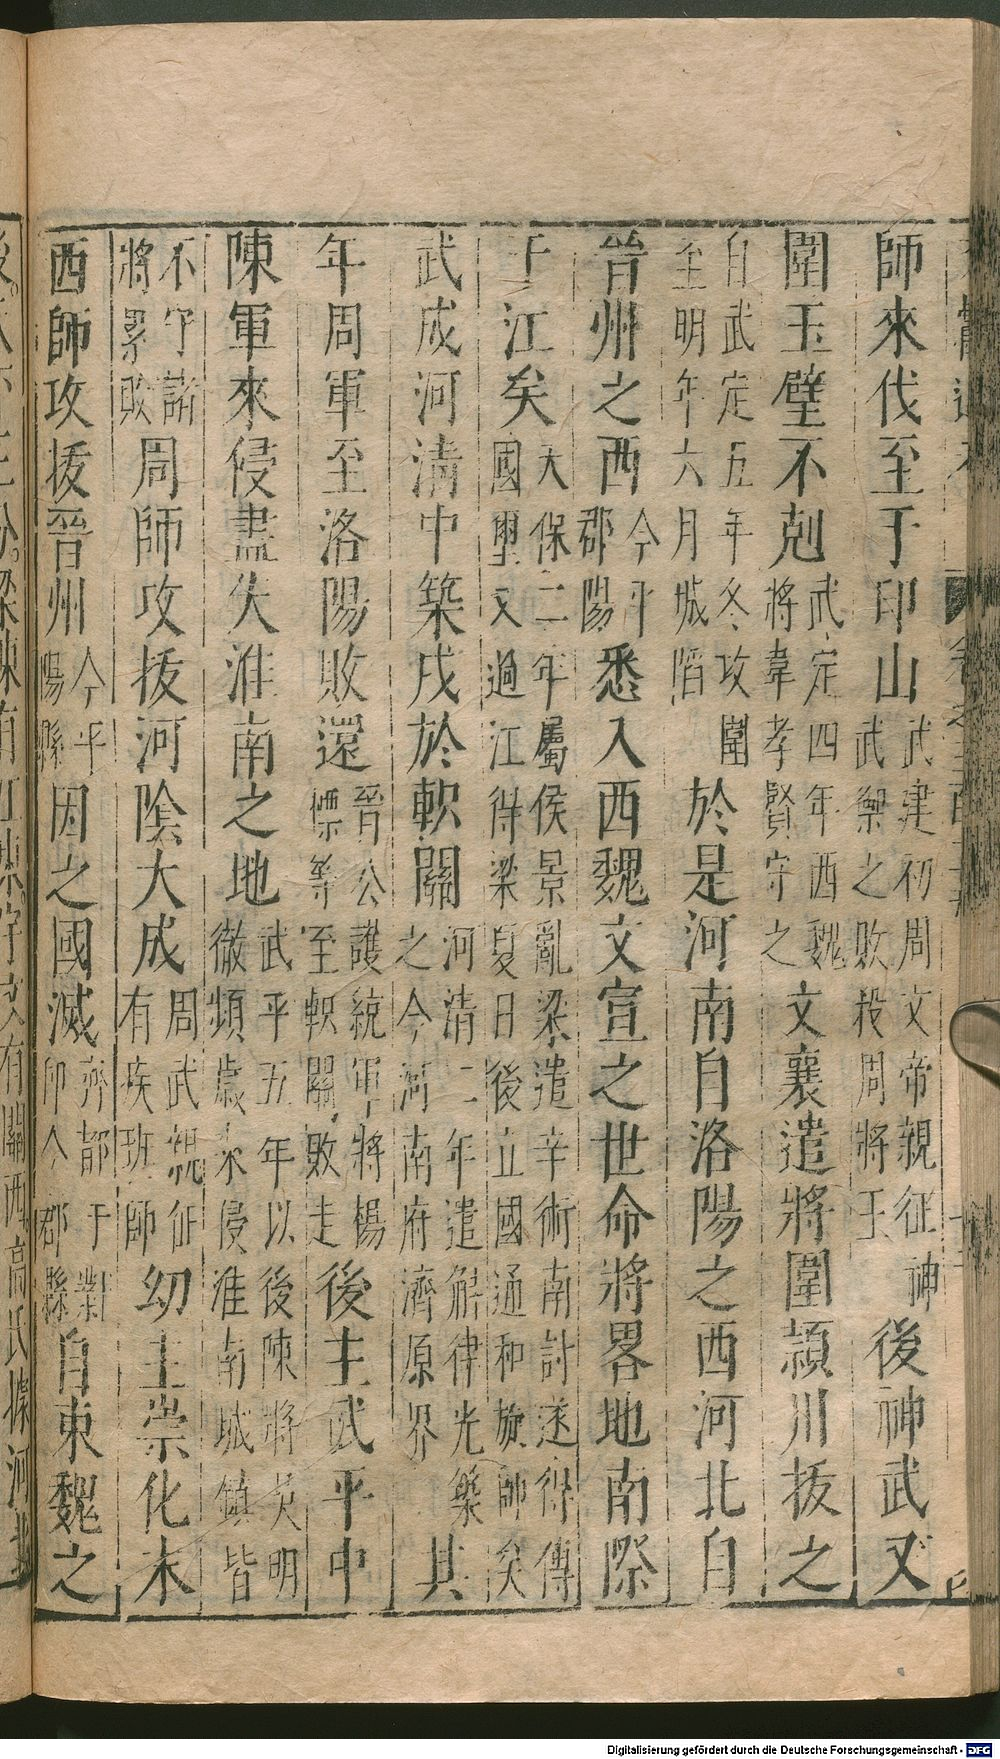 師來伐至于印山武建初周文帝親征神武禦之敗投周將王後神武又
圍玉壁不剋武定四年西魏將韋孝賢守之文襄遣將圍潁川拔之
自武定五年冬攻圍至明年六月城陷於是河南自洛陽之西河北自
晉州之西今平郡陽悉入西魏文宣之世命將畧地南際
于江矣天保二年屬侯景亂梁遣辛術南討遂得傳國璽又過江得梁夏日後立國通和旋師矣
武成河清中築戍於軹關河清二年遣斛律光築之今河南府濟原界其
年周軍至洛陽敗還晉公護統軍將楊㯹等至軹關敗走後主武平中
陳軍來侵盡失淮南之地武平五年以後陳將吳明徹頻歲來侵淮南城鎮皆
不守諸將累敗周師攻拔河陰大成周武親征有疾班師幼主崇化末
西師攻拔晉州今平陽縣因之國滅齊都于鄴卽今郡縣自東魏之
Digitalisierung gefördert durch die Deutsche Forschungsgemeinschaft - DFG